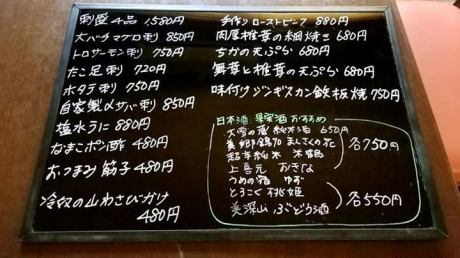 刺盛 4品 1,580円
大バチマグロ刺 850円
トロサーモン刺 750円
たこ足刺 720円
ホタテ刺 750円
自家製〆サバ刺 850円
塩水うに 880円
なまこポン酢 480円
おつまみ筋子 480円
冷奴の山わさびかけ
480円
手作りローストビーフ 880円
肉厚椎茸の網焼き 680円
ちかの天ぷら 680円
舞茸と椎茸の天ぷら 680円
味付けジンギスカン鉄板焼 750円
日本酒 果実酒 おすすめ
大雪の蔵 純米酒 650円
美郷錦70 まんさくの花
純米 
上喜元 おきな
各750円
うめの酒 ゆず
とろこく 桃姫
美深山 ぶどう酒
各550円